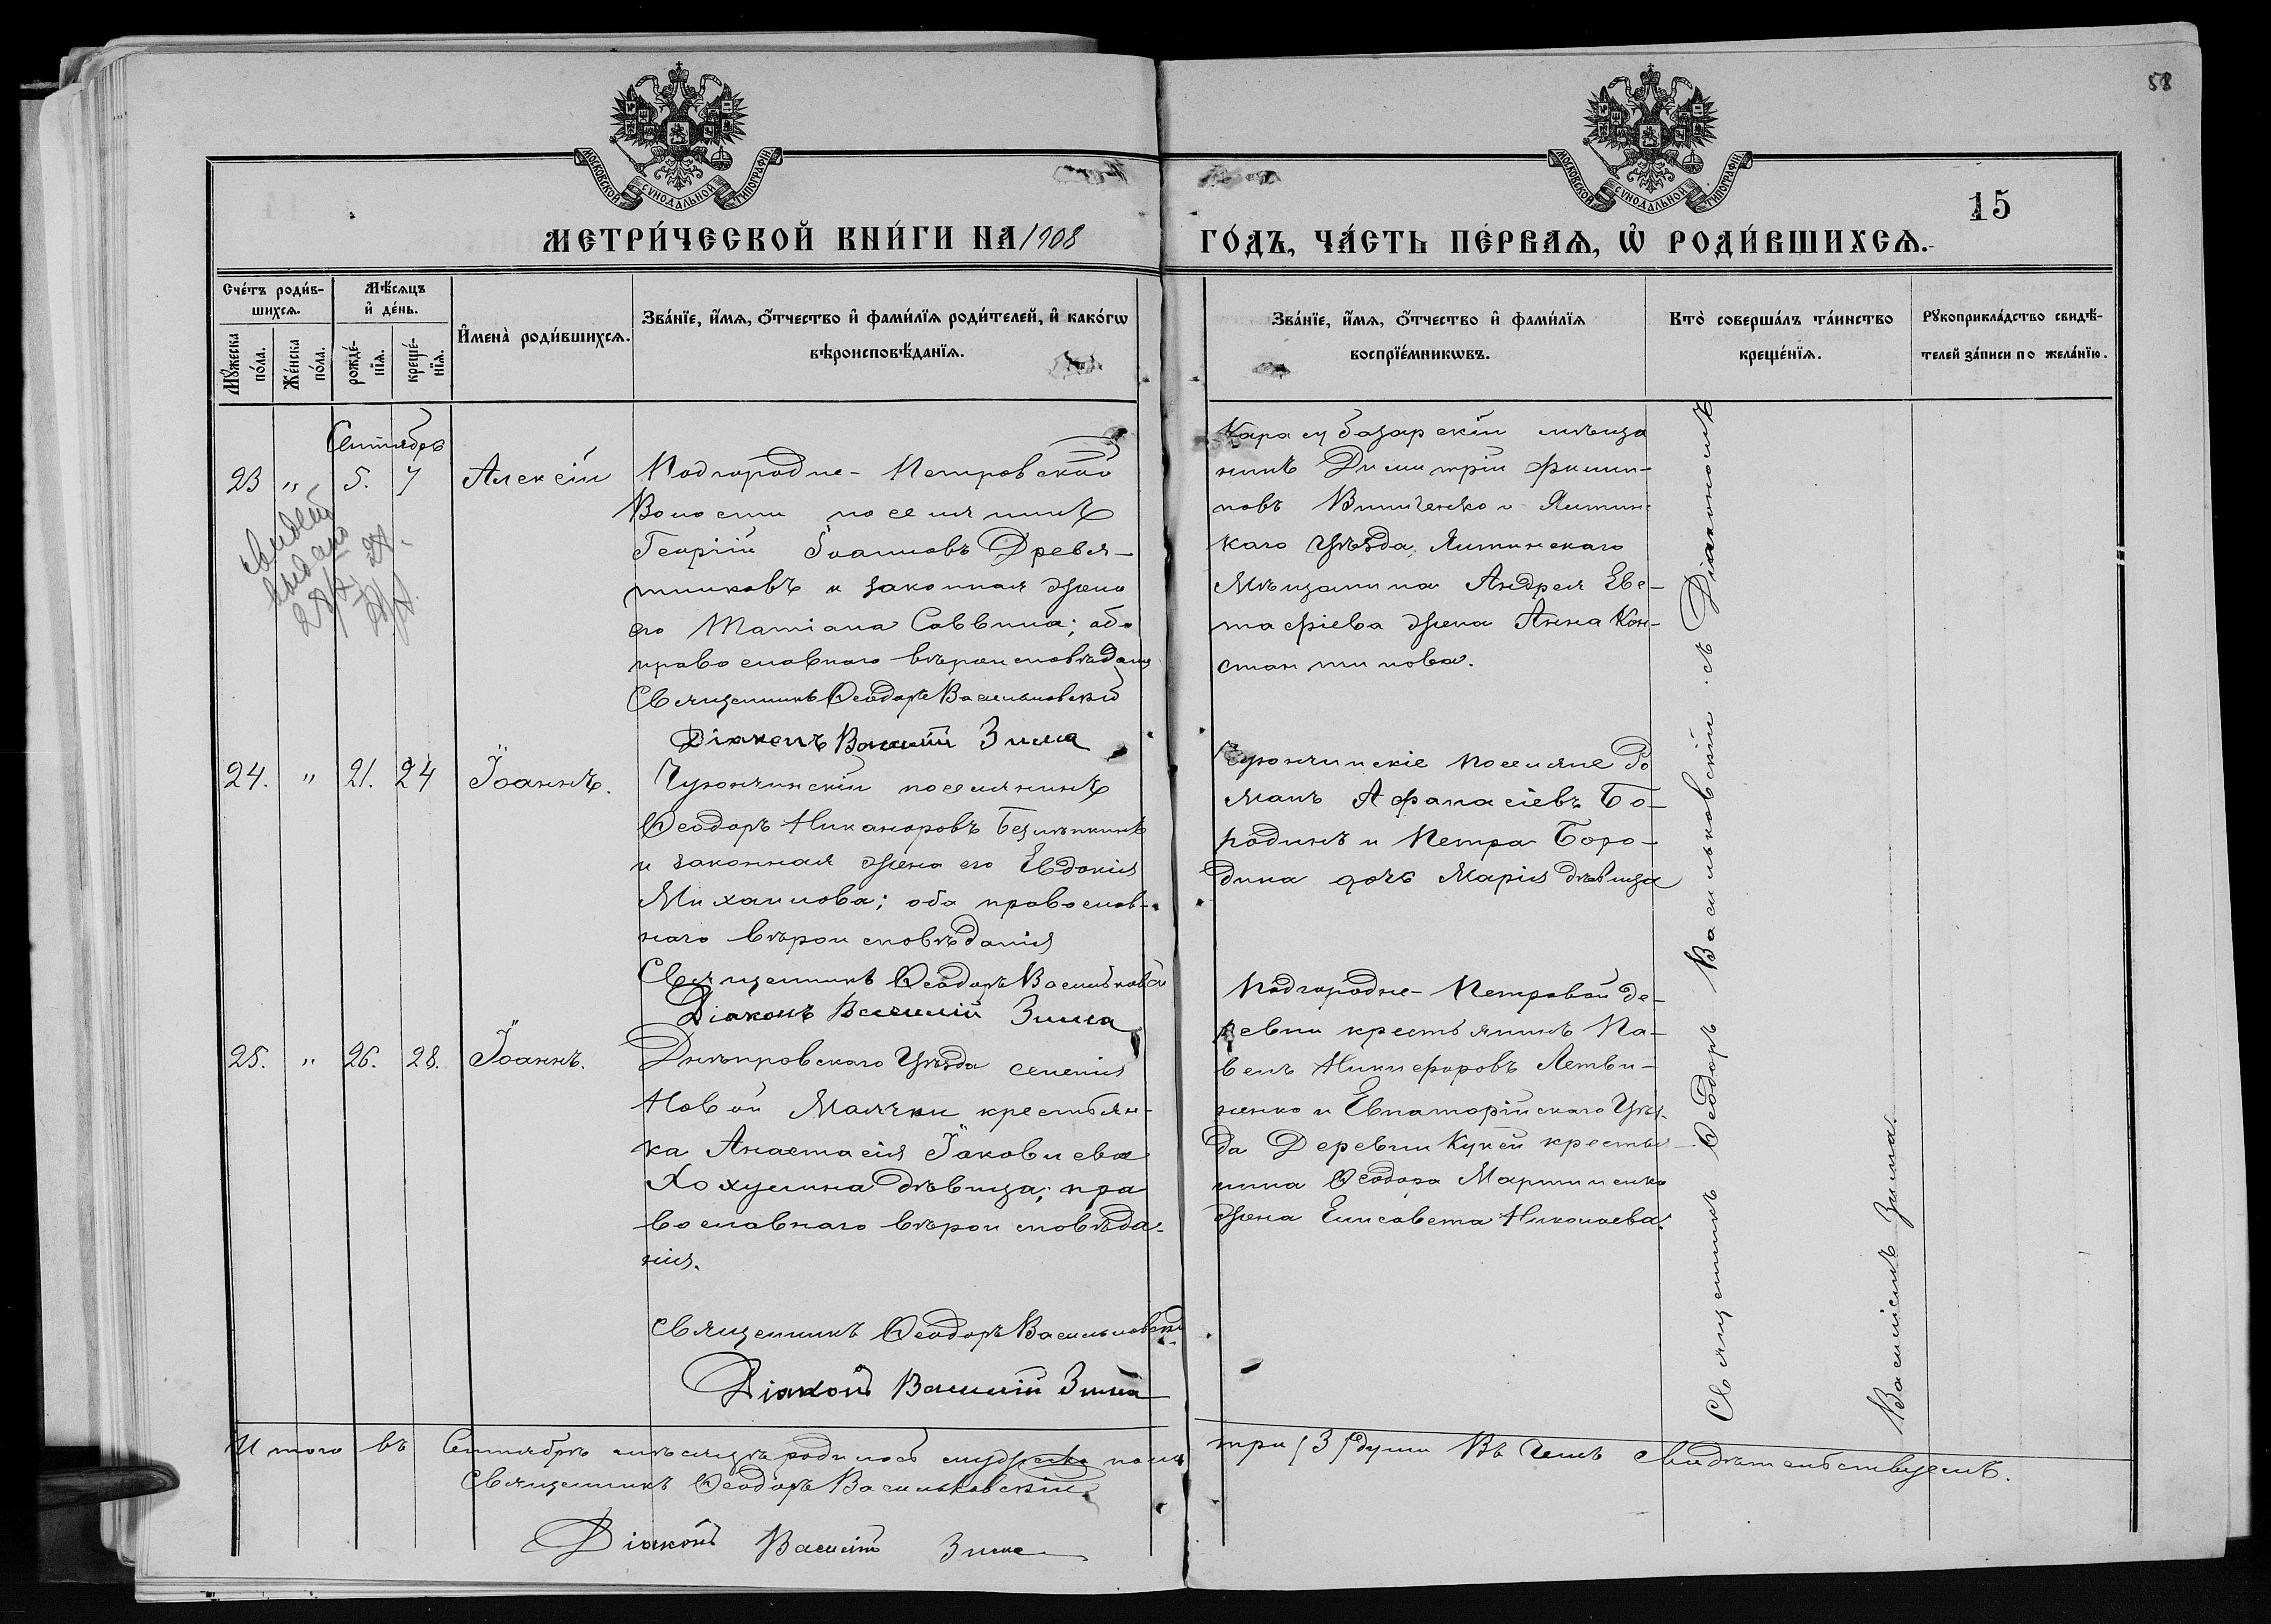 58
МОСКОВСКОЙ СѴНОДАЛЬНОЙ ТИПОГРАФІИ.
МОСКОВСКОЙ СѴНОДАЛЬНОЙ ТИПОГРАФІИ.
15
МЕТРИ́ЧЕСКОЙ КНИ́ГИ НА 1908
ГО́ДЪ, ЧА́СТЬ ПЕ́РВАѦ, Ѽ РОДИ́ВШИХСѦ.
Сче́тъ роди́в-
шихсѧ.
Мꙋ́жеска по́ла.
Же́нска по́ла.
Мѣ́сѧцъ
и҆ де́нь.
рожде́-
нїѧ.
креще́-
нїѧ.
И҆мена̀ роди́вшихсѧ.
Зва́нїе, и҆́мѧ, ѻ҆́тчество и҆ фами́лїѧ роди́телей, и҆ како́гѡ
вѣроисповѣ́данїѧ.
Зва́нїе, и҆́мѧ, ѻ҆́тчество и҆ фами́лїѧ
воспрїе́мникѡвъ.
Кто̀ соверша́лъ та́инство
креще́нїѧ.
Рꙋкоприкла́дство свидѣ́-
телей за́писи по жела́нїю.
Сентябрь
23 " 5. 7 Алексій
Подгородне-Петровской
Волости поселянинъ
Георгій Іоанновъ Древя-
нниковъ и законная жена
его Татіана Саввина; оба
православнаго вѣроисповѣданія
Священникъ Ѳеодоръ Васильковскій
Діаконъ Василій Зима
Карасубазарскій мѣща
нинъ Димитрій Филип-
повъ Винниченко и Ялтин-
каго Уѣзда, Ялтинскаго
Мѣщанина Андрея Евс-
тафіева жена Анна Кон-
стантинова.
Свидет
выдано
24. " 21. 24 Іоаннъ.
Чуюнчинскій поселянинъ
Ѳеодоръ Никаноровъ
и законная жена его Евдокія
Михаилова; оба православ-
наго вѣроисповѣданія
Священникъ Ѳеодоръ Васильковскій
Діаконъ Василій Зима
Чуюнчинскіе поселяне Ро
манъ Афанасіевъ Бо-
родинъ и Петра Боро-
дина дочь Марія дѣвица
25. " 26. 28. Іоаннъ.
Днѣпровскаго Уѣзда селенія
Новой Маячки крестьян-
ка Анастасія Іаковлева
Хохулина дѣвица; пра
вославнаго вѣроисповѣда-
нія.
Священникъ Ѳеодоръ Васильковскій
Діаконъ Василій Зима
Подгородне-Петровой де-
ревни крестьянинъ Па-
велъ Никифоровъ Летви-
ненко и Евпаторійскаго Уѣз-
да Деревни Кукей крестья-
нина Ѳеодора Мартиненко
жена Елисавета Николаева.
Священникъ Ѳеодоръ Васильковскій съ Діакономъ
Василіемъ Зима.
Итого въ Сентябрѣ мѣсяцѣ родилось мужеска пола три (3) души Въ чемъ свидѣтельствуемъ.
Священникъ Ѳеодоръ Васильковскій
Діаконъ Василій Зима